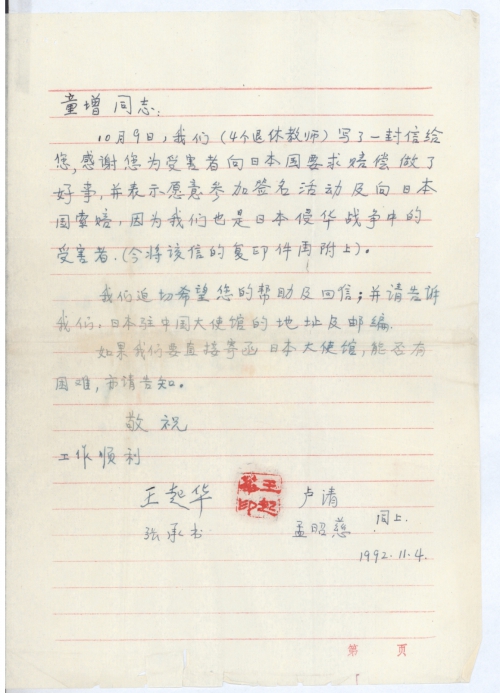 童增同志：
10月9日，我们（4个退休教师）写了一封信给
您，感谢您为受害者向日本国要求赔偿做了
好事，并表示愿意参加签名活动及向日本
国索赔，因为我们也是日本侵华战争中的
受害者.（今将该信的复印件再附上）。
我们迫切希望您的帮助及回信；并请告诉
我们，日本驻中国大使馆的地址及邮编.
如果我们要直接寄函日本大使馆，能否有
困难，亦请告知。
敬祝
工作顺利
王起华 卢清
王起华印
张承书 孟昭慈 同上.
1992.11.4.
第 页